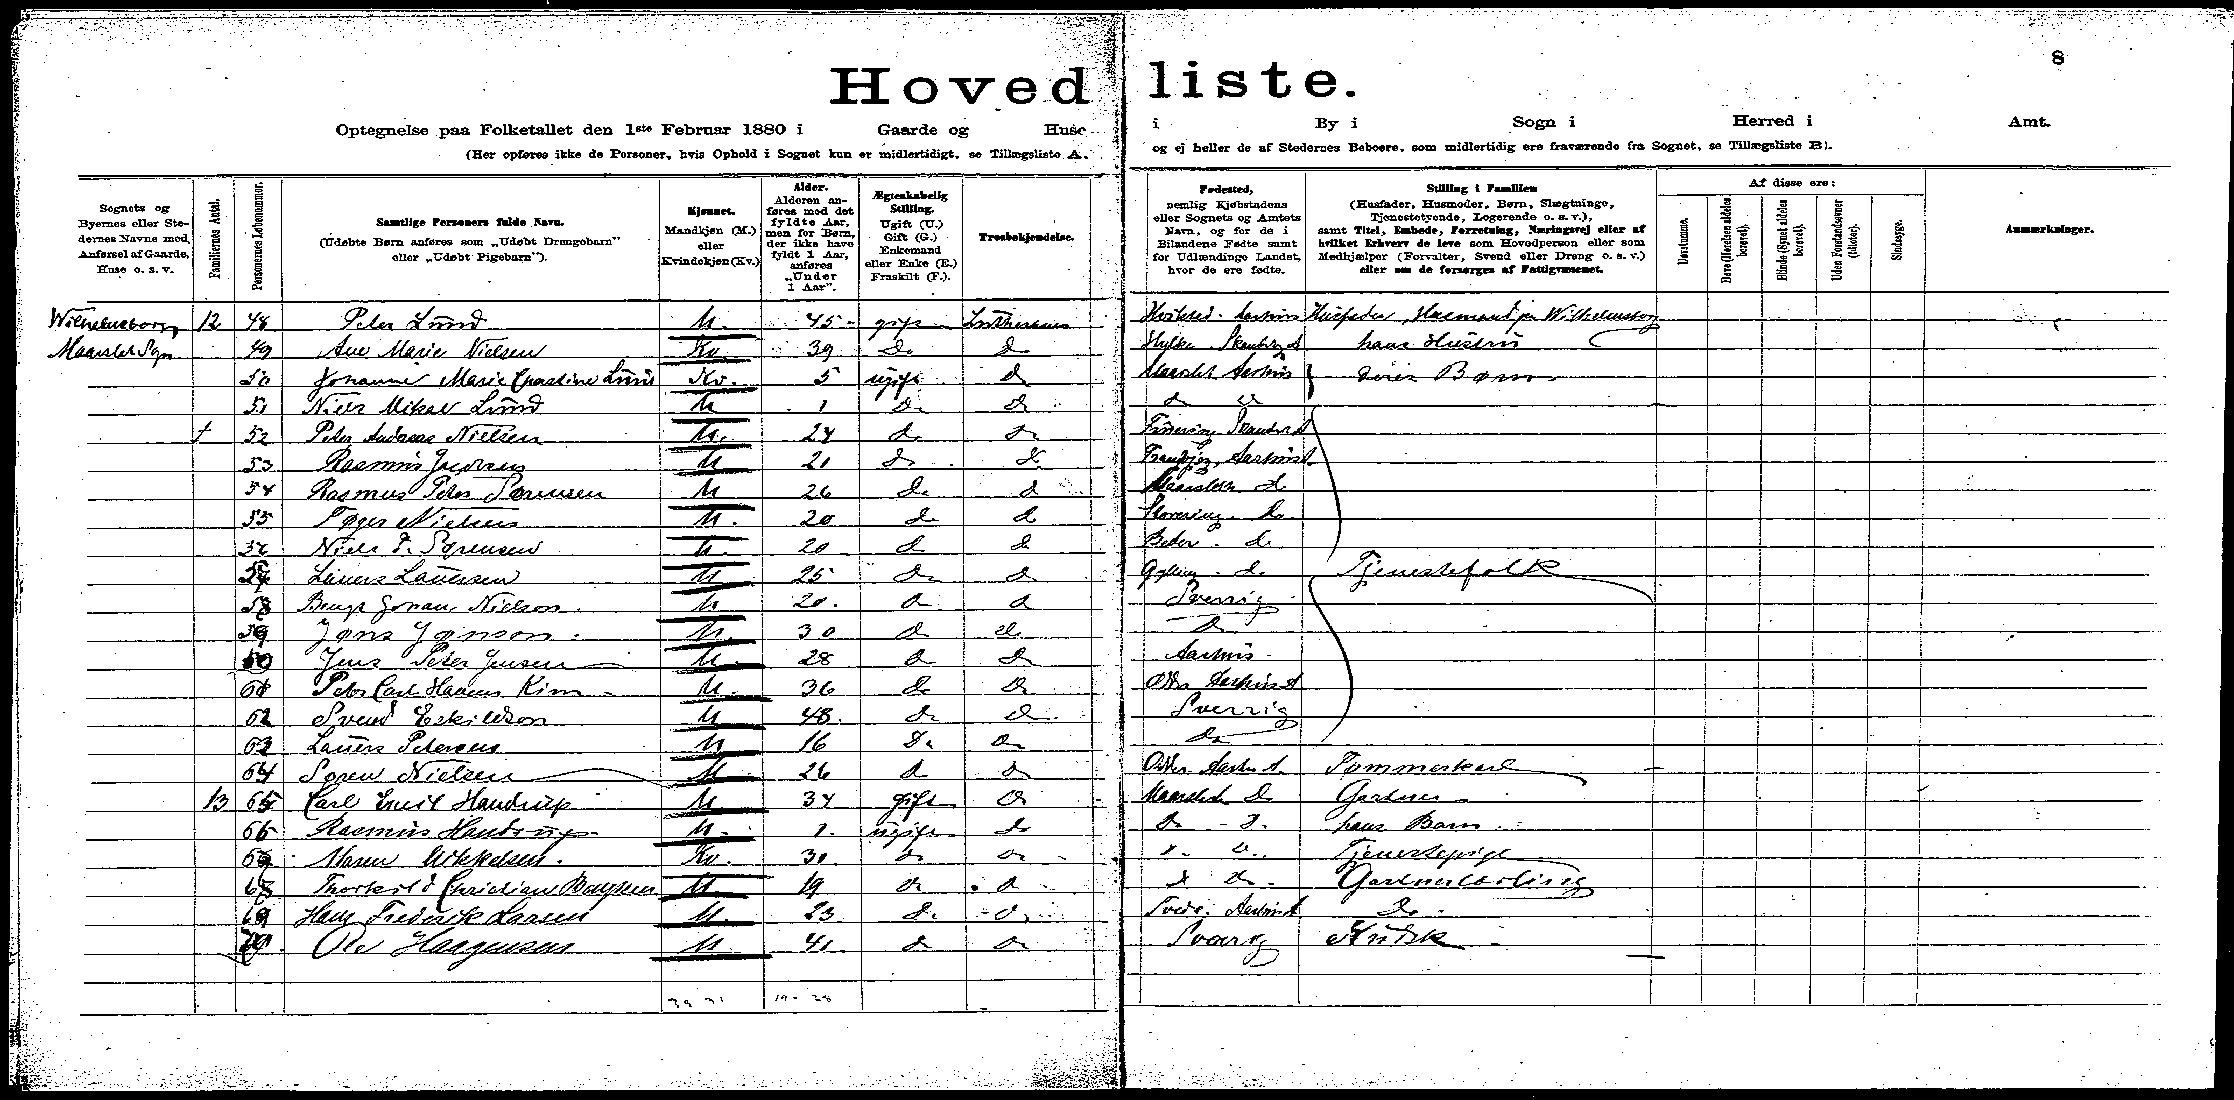 8
Hovedliste.
Optegnelse paa Folketallet den 1ste Februar 1880 i Gaarde og Huse i By i Sogn i Herred i Amt.
(Her opføres ikke de Personer, hvis Ophold i Sognet kun er midlertidigt, se Tillægsliste A. og ej heller de af Stedernes Beboere, som midlertidig ere fraværende fra Sognet, se Tillægsliste B).
Sognets og Byernes eller Stedernes Navne med Anførsel af Gaarde, Huse o. s. v.
Familiernes Antal.
Personernes Løbenummer.
Samtlige Personers fulde Navn. (Udøbte Børn anføres som „Udøbt Drengebarn" eller „Udøbt Pigebarn").
Kjønnet. Mandkjøn (M.) eller Kvindekjøn (Kv.)
Alder. Alderen anføres med det fyldte Aar, men for Børn, der ikke have fyldt 1 Aar, anføres „Under 1 Aar".
Ægteskabelig Stilling. Ugift (U.) Gift (G.) Enkemand eller Enke (E.) Fraskilt (F.).
Trosbekjendelse.
Fødested, nemlig Kjøbstadens eller Sognets og Amtets Navn, og for de i Bilandene Fødte samt for Udlændinge Landet, hvor de ere fødte.
Stilling i Familien (Husfader, Husmoder, Børn, Slægtninge, Tjenestetyende, Logerende o. s. v.), samt Titel, Embede, Forretning, Næringsvej eller af hvilket Erhverv de leve som Hovedperson eller som Medhjælper (Forvalter, Svend eller Dreng o. s. v.) eller om de forsørges af Fattigvæsenet.
Af disse ere:
Døvstumme.
Døve (Hørelsen aldeles berøvet).
Blinde (Synet aldeles berøvet).
Uden Forstandsevner (Idioter).
Sindssyge.
Anmærkninger.
Wilhelmsborg 12 48 Peter Lund M. 45 gift Lutheraner Aarhus Husfader, Husmand paa Wilhelmsborg
Maarslet Sogn 49 Ane Marie Nielsen Kv 39 do do Hylke Skanderb. A hans Hustru
50 Johanne Marie Lund Kv. 5 ugift do Maarslet Aarhus deres Børn
51 Niels Lund M 1 do do do do
52 Peter Andreas Nielsen M. 24 do do
53 Rasmus M 21 do do Aarhus A
54 Rasmus Peter Sørensen M 26 do do Maarslet do
55 Nielsen M. 20 do do do
56 Niels P. Sørensen M. 20 do do Beder do
57 Laurs Laursen M 25 do do Gylling do Tjenestefolk
58 Bengt Johan Nielson M 20 do do Sverrig
59 Jøns Jønson M. 30 do do do
60 Jens Peter Jensen M. 28 do do Aarhus
61 Peter Carl M. 36 do do Odder Aarhus A
62 Svend Eskildson M 48 do do Sverrig
63 Laurs Petersen M 16 do do do
64 Søren Nielsen M 26 do do Odder Aarhus A Tømmerkarl
13 65 Carl Emil Handrup M 34 gift do Maarslet do Gartner
66 Rasmus Handrup M. 1 ugift do do do hans Barn
67 Maren Mikkelsen Kv. 30 do do do do Tjenestepige
68 Thorkild Christian M. 19 do do do do Gartnerlærling
69 Hans Frederik Larsen M. 23 do do Aarhus A do
70 Ole M 41 do do Sverrig Kudsk